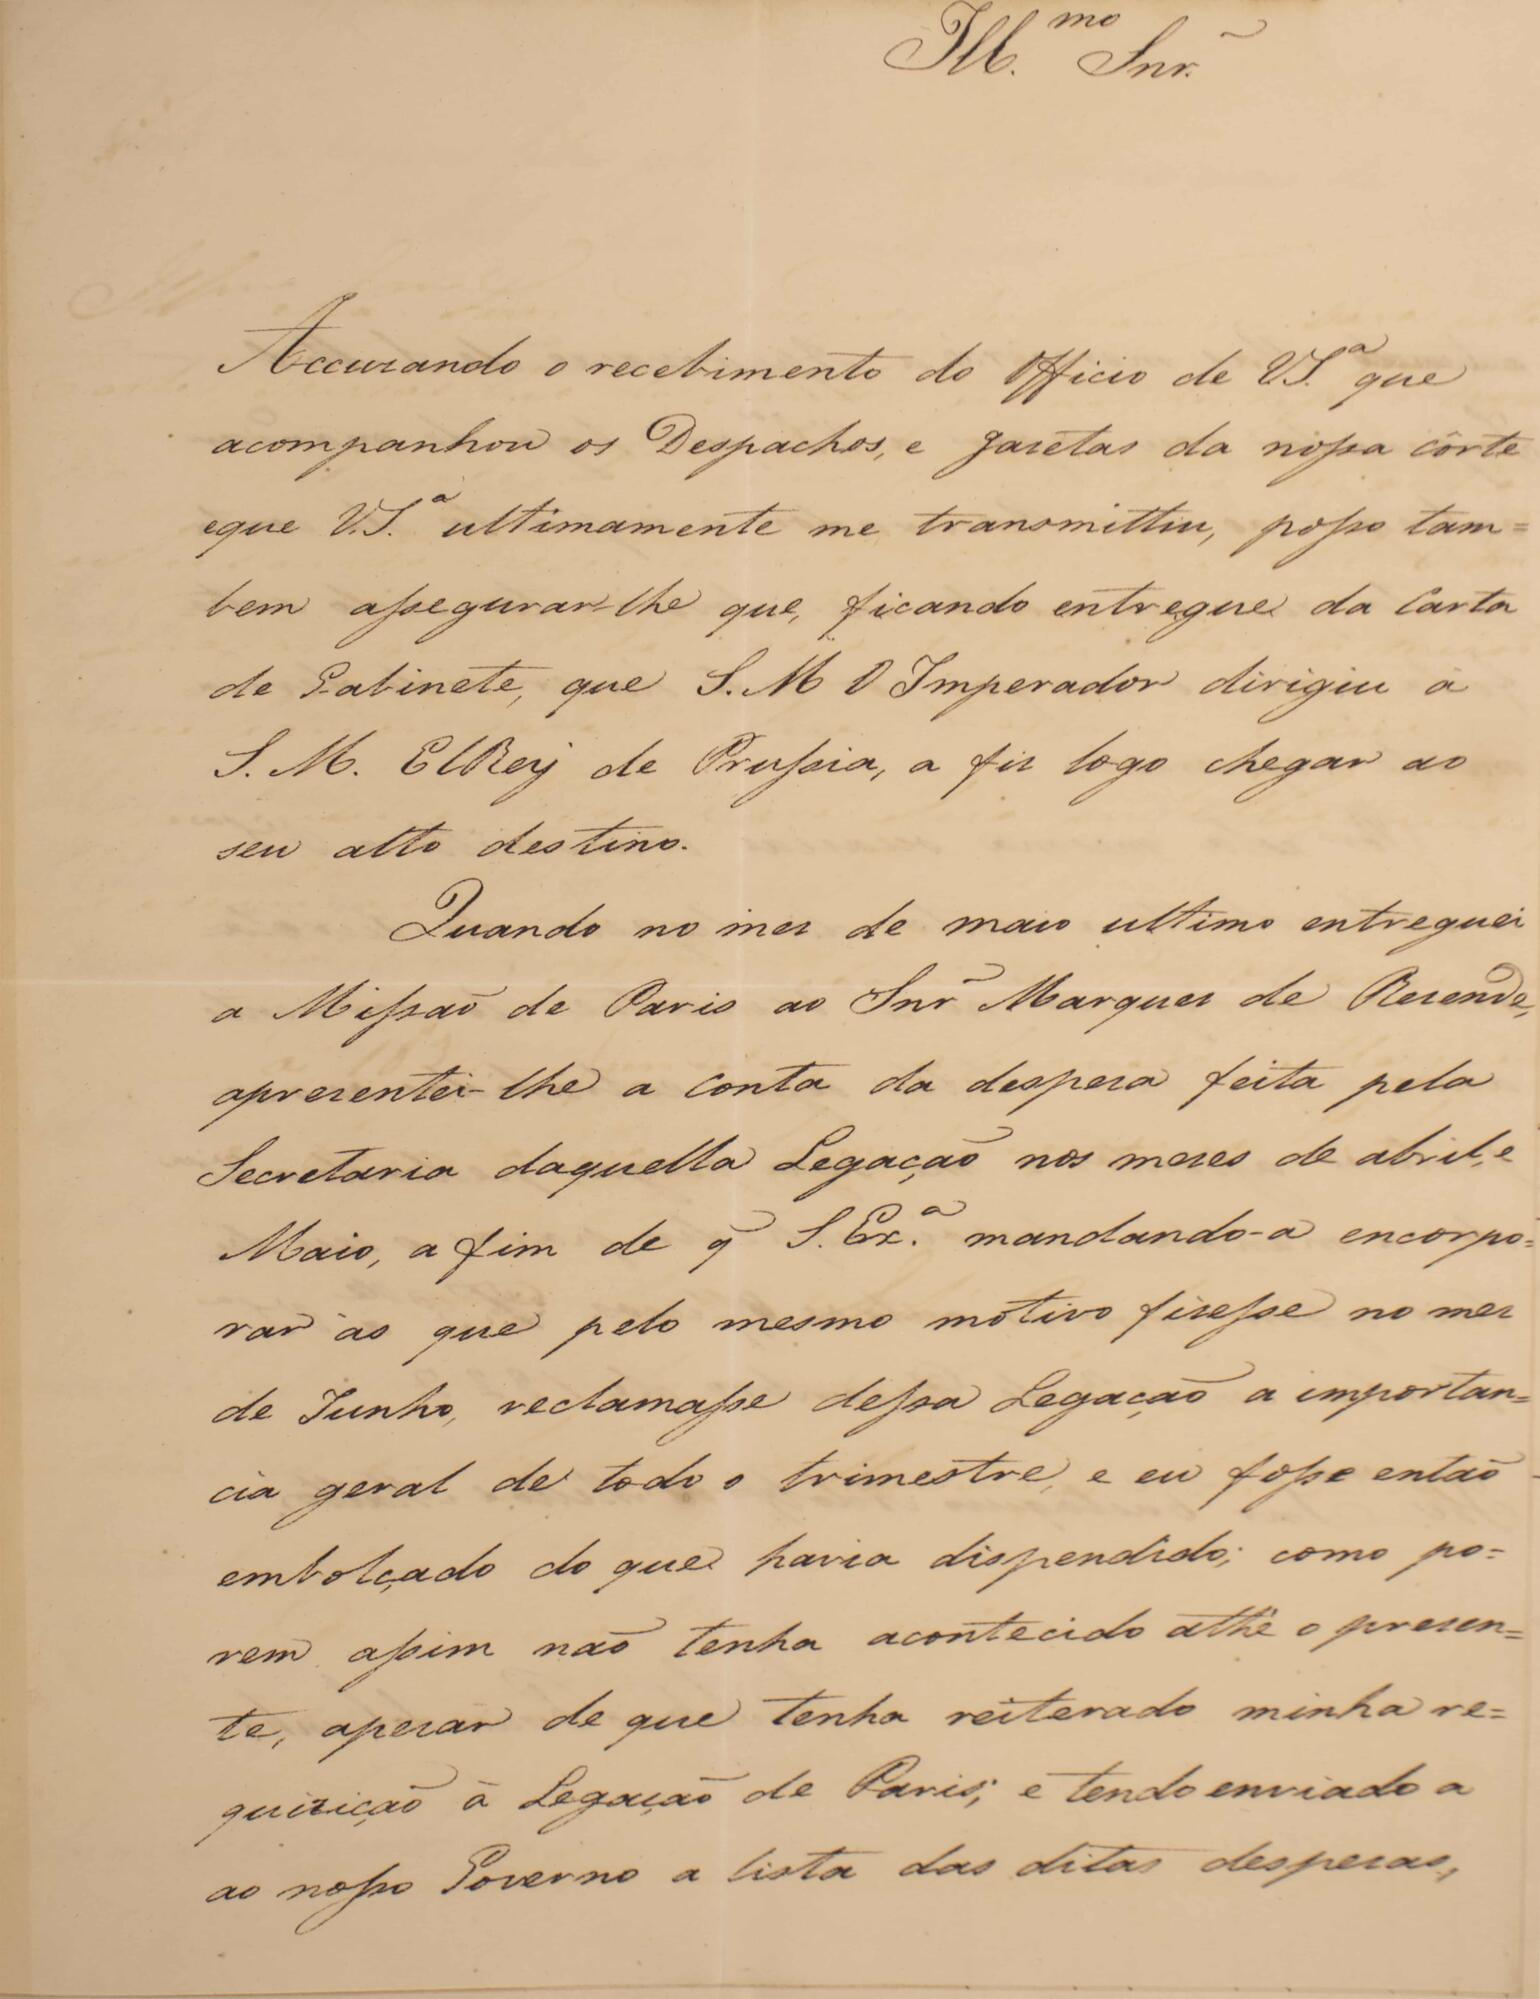 Ill.mo Snr.
Accuzando o recebimento do Officio de V.S.a que
acompanhou os Despachos, e gazetas da nossa côrte
eque V.S.a ultimamente me transmittiu, posso tam=
bem assegurar-lhe que, ficando entregue da Carta
de Gabinete, que S. M O Imperador dirigiu a
S. M. ElRey de Prussia, a fiz logo chegar ao
seu alto destino.
Quando no mez de maio ultimo entreguei
a Missão de Paris ao Snr Marquez de Rezende,
aprezentei-lhe a conta da despeza feita pela
Secretaria daquella Legação nos mezes de abril, e
Maio, a fim de q̃ S. Ex.a mandando-a encorpo=
rar ás que pelo mesmo motivo fizesse no mez
de Junho, reclamasse dessa Legação a importan=
cia geral de todo o trimestre, e eu fosse então
embolçado do que havia dispendido; como po=
rem assim não tenha acontecido athé o prezen=
te, apezar de que tenha reiterado minha re=
quizição á Legação de Paris; e tendo enviado a
ao nosso Governo a lista das ditas despezas,